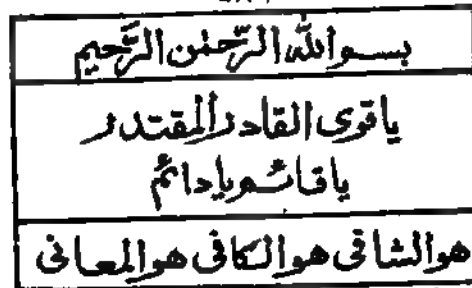 بسم الله الرحمن الرحیم
یا قوی القادر المقتدر
یا قائم یا دائم
هو الشافی هو الکافی هو المعافی